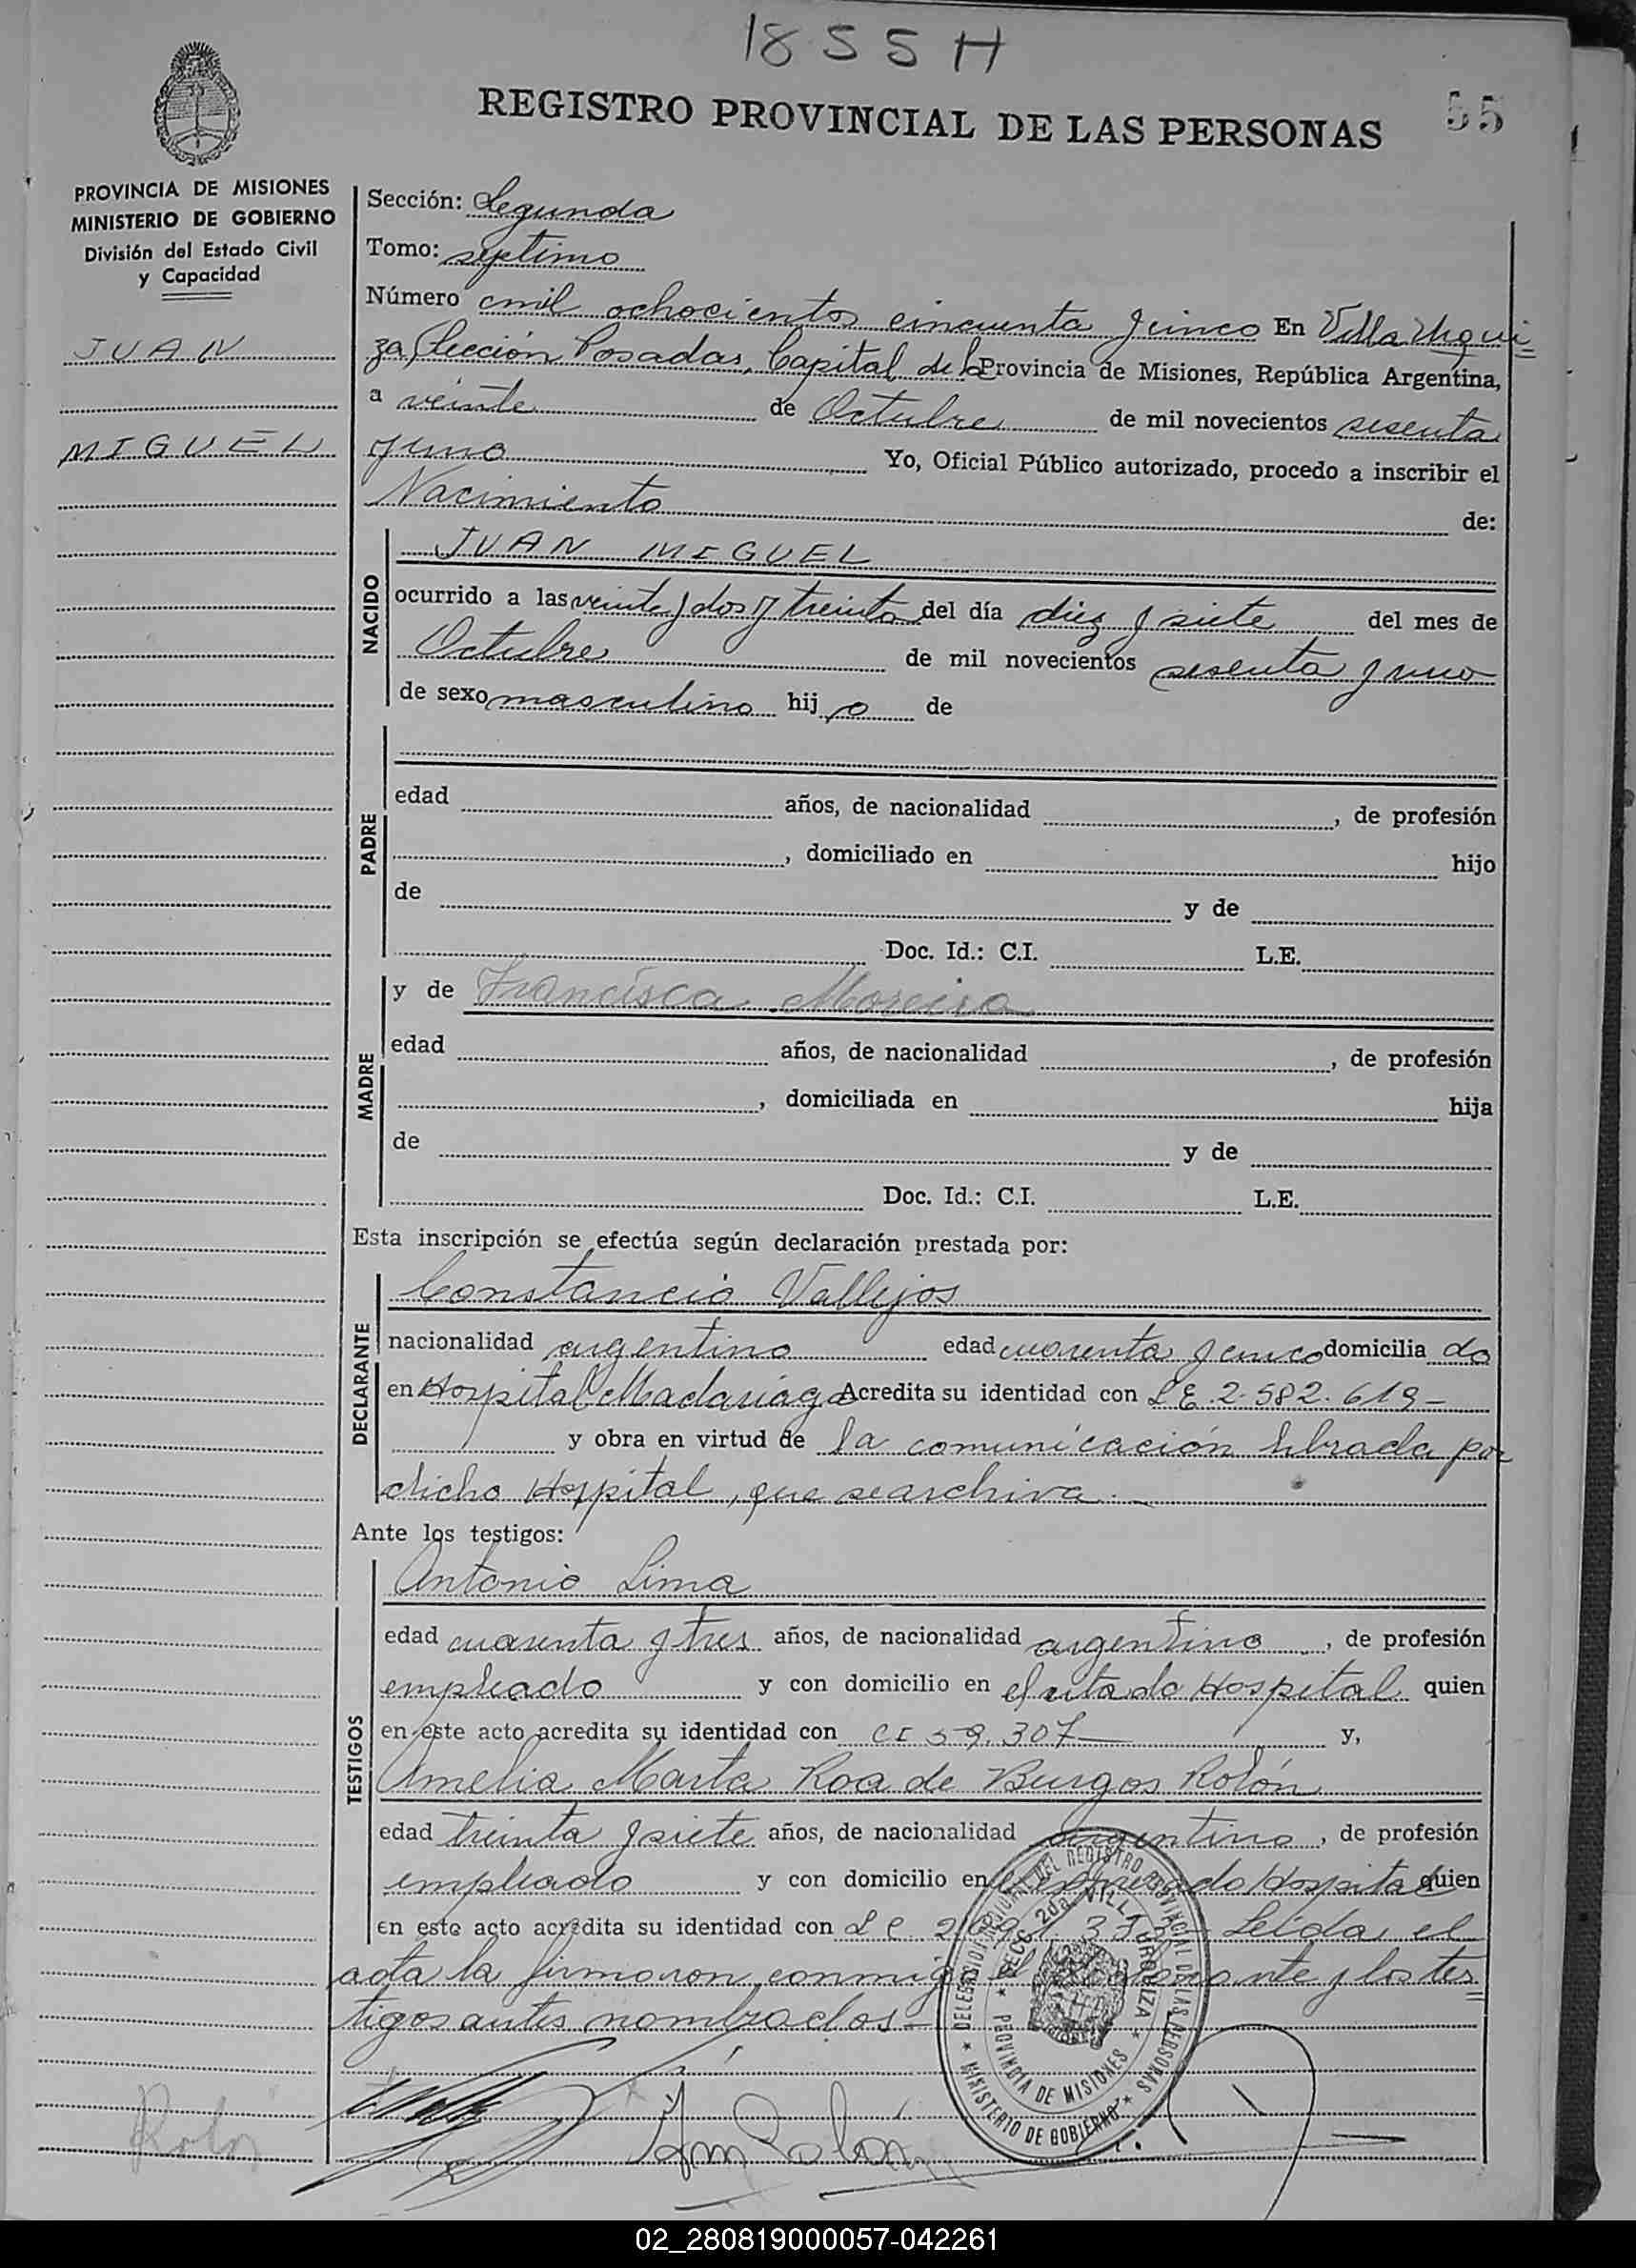 1855 H
REGISTRO PROVINCIAL DE LAS PERSONAS
55
PROVINCIA DE MISIONES
MINISTERIO DE GOBIERNO
División del Estado Civil
y Capacidad
JUAN
MIGUEL
Sección: Segunda
Tomo: septimo
Número mil ochocientos cincuenta y cinco En Villa Urqui
za, Sección Posadas, Capital de la Provincia de Misiones, República Argentina,
a veinte de Octubre de mil novecientos sesenta
y uno Yo, Oficial Público autorizado, procedo a inscribir el
Nacimiento de:
NACIDO
JUAN MIGUEL
ocurrido a las veinte y dos y treinta del día diez y siete del mes de
Octubre de mil novecientos sesenta y uno
de sexo masculino hijo de
PADRE
edad años, de nacionalidad , de profesión
, domiciliado en hijo
de y de
Doc. Id.: C.I. L.E.
MADRE
y de Francisca Moreira
edad años, de nacionalidad , de profesión
, domiciliada en hija
de y de
Doc. Id.: C.I. L.E.
Esta inscripción se efectúa según declaración prestada por:
DECLARANTE
Constancio Vallejos
nacionalidad argentino edad cuarenta y cinco domicilia do
en Hospital Madariaga Acredita su identidad con L E. 2.582.619-
y obra en virtud de la comunicación librada por
dicho Hospital, que se archiva.-
Ante los testigos:
TESTIGOS
Antonio Lima
edad cuarenta y tres años, de nacionalidad argentino , de profesión
empleado y con domicilio en el citado Hospital quien
en este acto acredita su identidad con CI 59.307 y,
Amelia Marta Roa de Burgos Rolón
edad treinta y siete años, de nacionalidad argentina , de profesión
empleado y con domicilio en el expresado Hospital quien
en este acto acredita su identidad con L C Leida el
acta la firmaron conmigo el declarante y los tes
tigos antes nombrados-
DEL REGISTRO PROVINCIAL DE LAS PERSONAS
SECC. 2da. VILLA URQUIZA
PROVINCIA DE MISIONES
MINISTERIO DE GOBIERNO
Rolón
Am Rolón
02_280819000057-042261